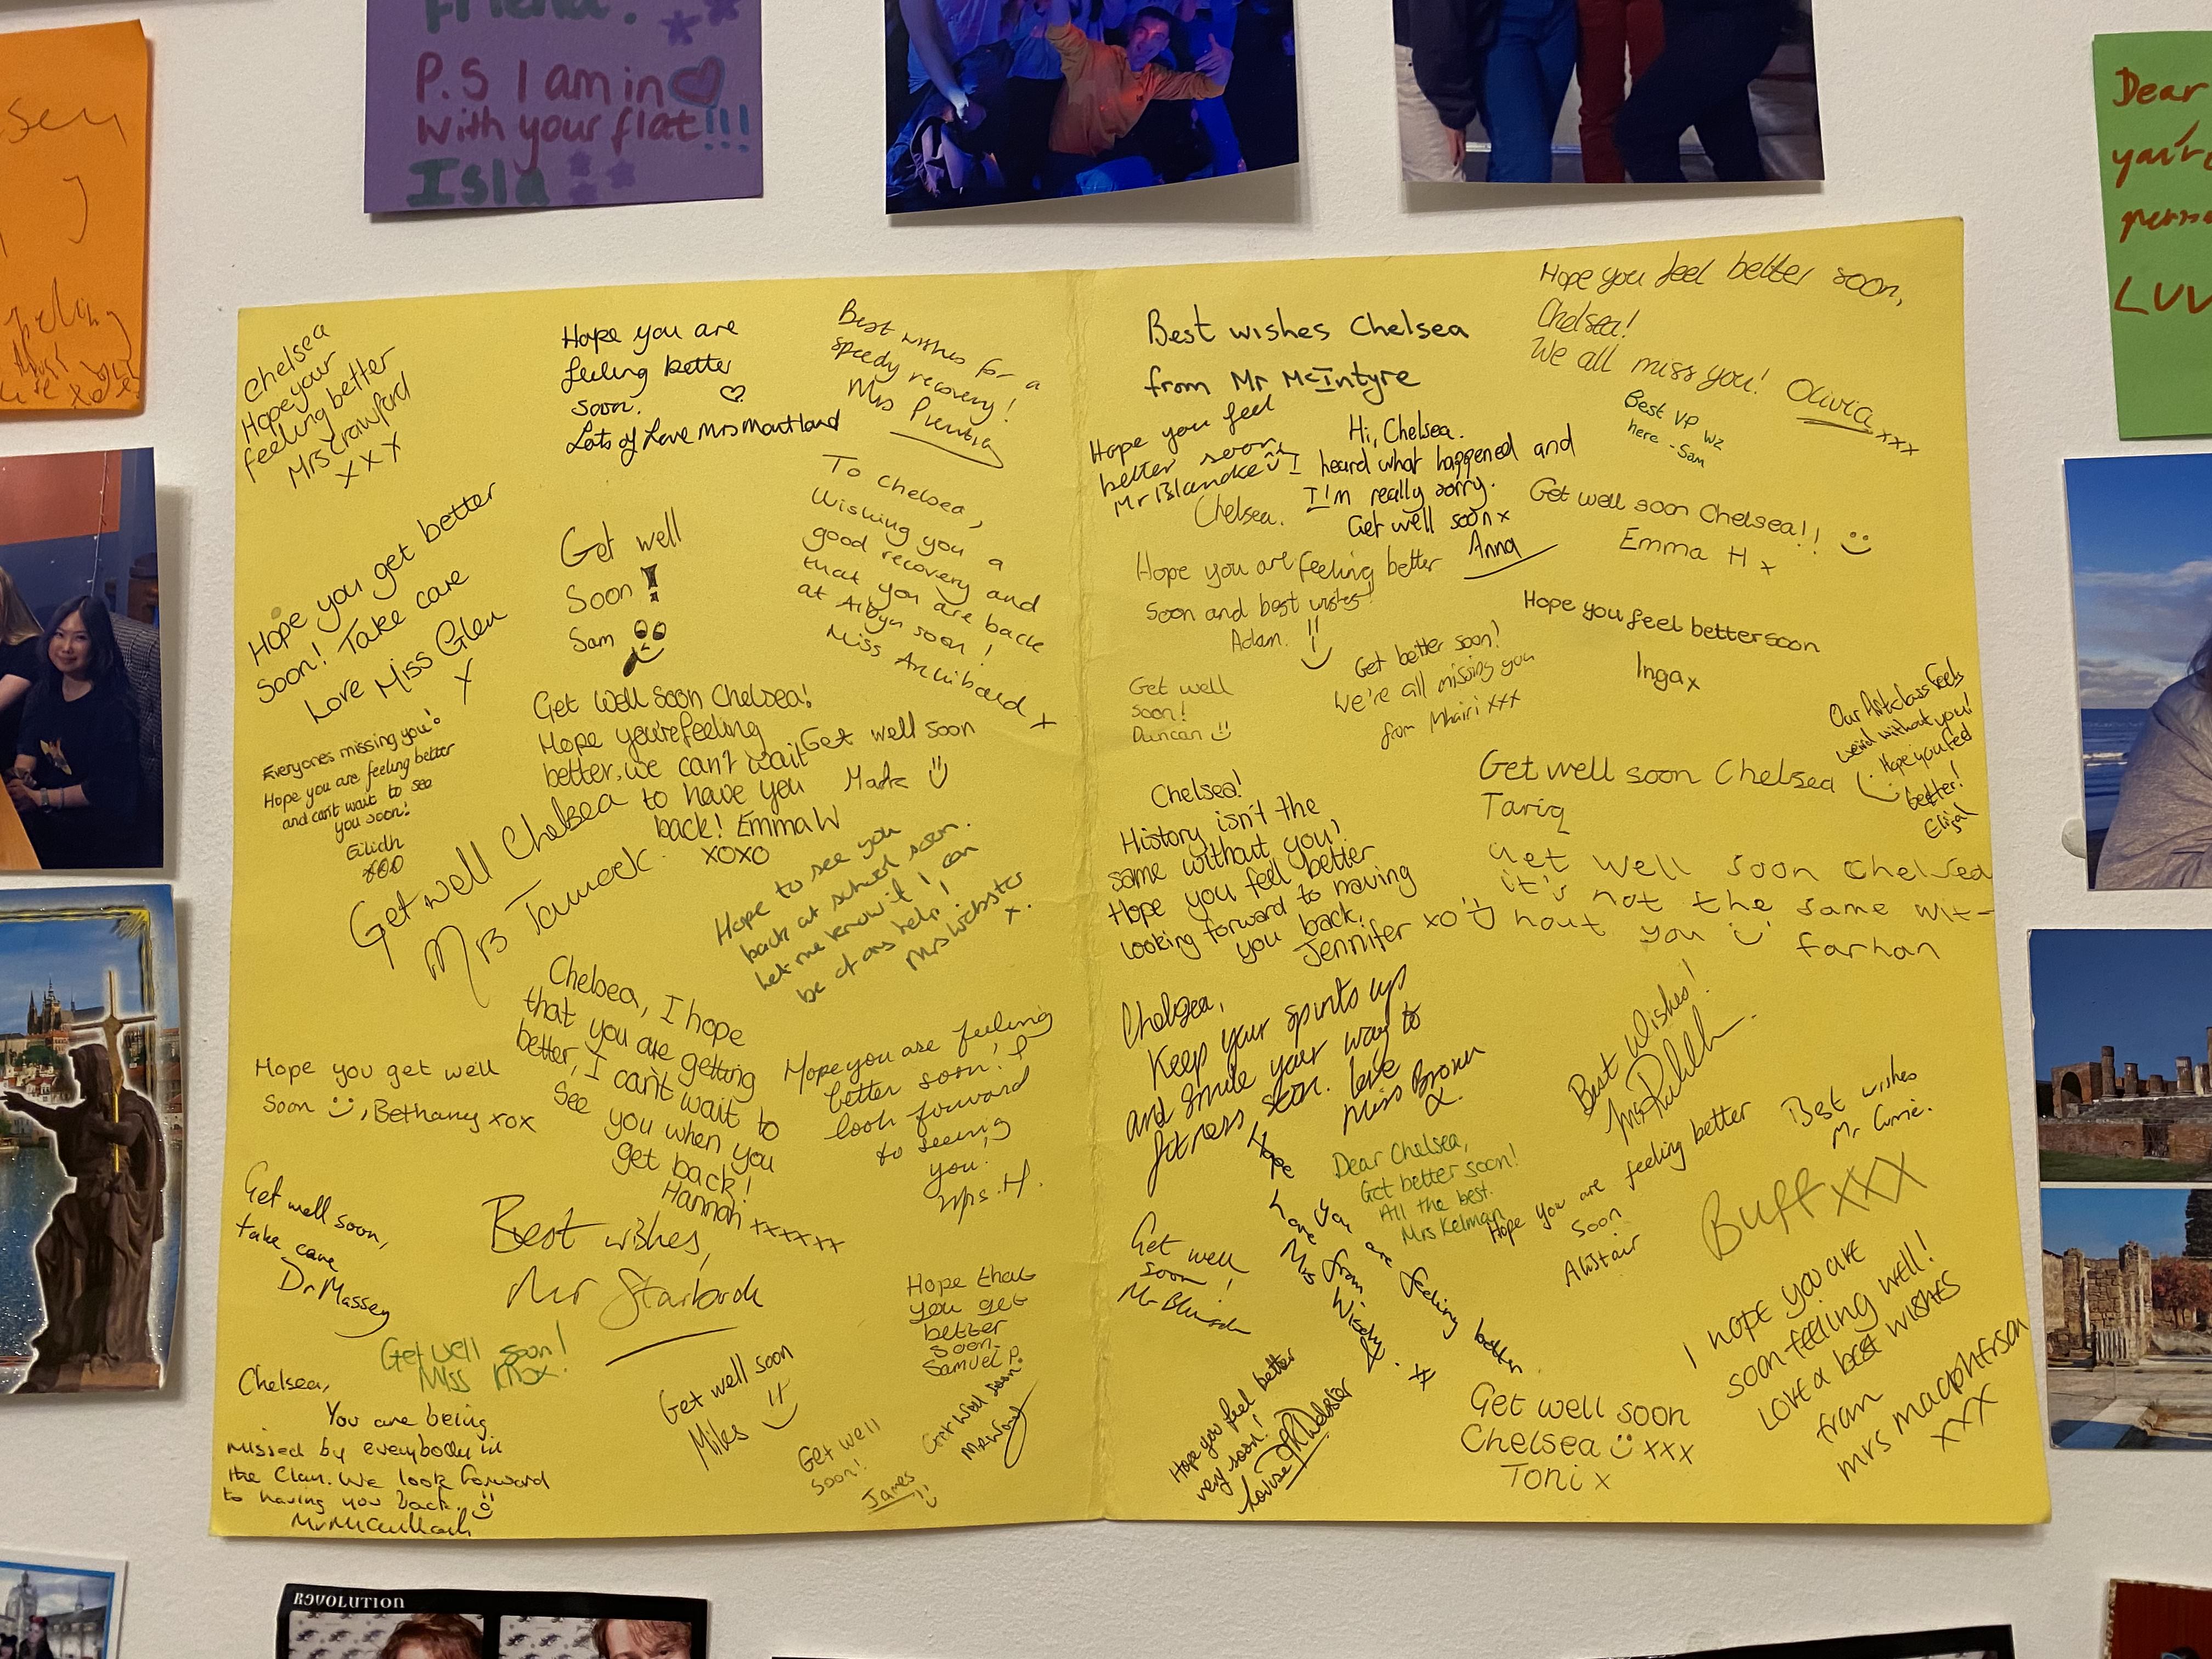 friend!
P.S I am in
with your flat!!!
Isla
Dear
you're
LUV
Chelsea
Hope your
feeling better
Mrs Crawford
xxx
Hope you are
feeling better
soon.
Lots of Love Mrs Maitland
Best wishes for a
speedy recovery!
Mrs
Hope you get better
soon! Take care
Love Miss Glen
x
Get well
Soon!
Sam
To Chelsea,
Wishing you a
good recovery and
that you are back
at Albyn soon!
Miss Archibald x
Everyones missing you!
Hope you are feeling better
and can't wait to see
you soon!
Eilidh
xoo
Get well soon Chelsea!
Hope you're feeling
better, we can't wait
to have you
back! Emma W
xoxo
Get well soon
Mark
Get well Chelsea
Mrs
Hope to see you
back at school soon.
Let me know if I can
be of any help!
Mrs Webster
x.
Chelsea, I hope
that you are getting
better, I can't wait to
see you when you
get back!
Hannah xxxxxx
Hope you get well
soon, Bethany xox
Hope you are feeling
better soon! I
look forward
to seeing
you.
Mrs. H.
Get well soon,
take care
Dr Massey
Best wishes,
Mr
Get well soon!
Miss Knox.
Hope that
you get
better
soon.
Samuel P.
Chelsea,
You are being
missed by everybody in
the Clan. We look forward
to having you back.
Mr McCulloch
Get well soon
Miles
Get well
soon!
James
Get well soon.
Mr Ward
Best wishes Chelsea
from Mr McIntyre
Hope you feel better soon,
Chelsea!
We all miss you! Olivia xxx
Best VP W2
here - Sam
Hope you feel
better soon,
Mr
Chelsea.
Hi, Chelsea.
I heard what happened and
I'm really sorry.
Get well soon x
Anna
Get well soon Chelsea!!
Emma H x
Hope you are feeling better
Soon and best wishes!
Adam.
Hope you feel better soon
Inga x
Get better soon!
We're all missing you
from Mhairi xxx
Get well
soon!
Duncan
Our Art class feels
weird without you!
Hope you feel
better!
Get well soon Chelsea
Tariq
Chelsea!
History isn't the
same without you!
Hope you feel better
looking forward to having
you back.
Jennifer xo
Get well soon Chelsea
it's not the same wit-
hout you
farhan
Chelsea,
Keep your spirits up
and smile your way to
fitness soon. love
Miss Brown
x.
Best Wishes!
Best wishes
Mr Currie.
Dear Chelsea,
Get better soon!
All the best.
Mrs Kelman
Hope you are feeling better
soon
Alistair
Buff xxx
Hope you are feeling better
Love from
Mrs
xx
Get well
soon!
Mr
I hope you are
soon feeling well!
Love & best wishes
from
mrs macpherson
xxx
Hope you feel better
very soon!
Louise Webster
Get well soon
Chelsea xxx
Toni x
REVOLUTION